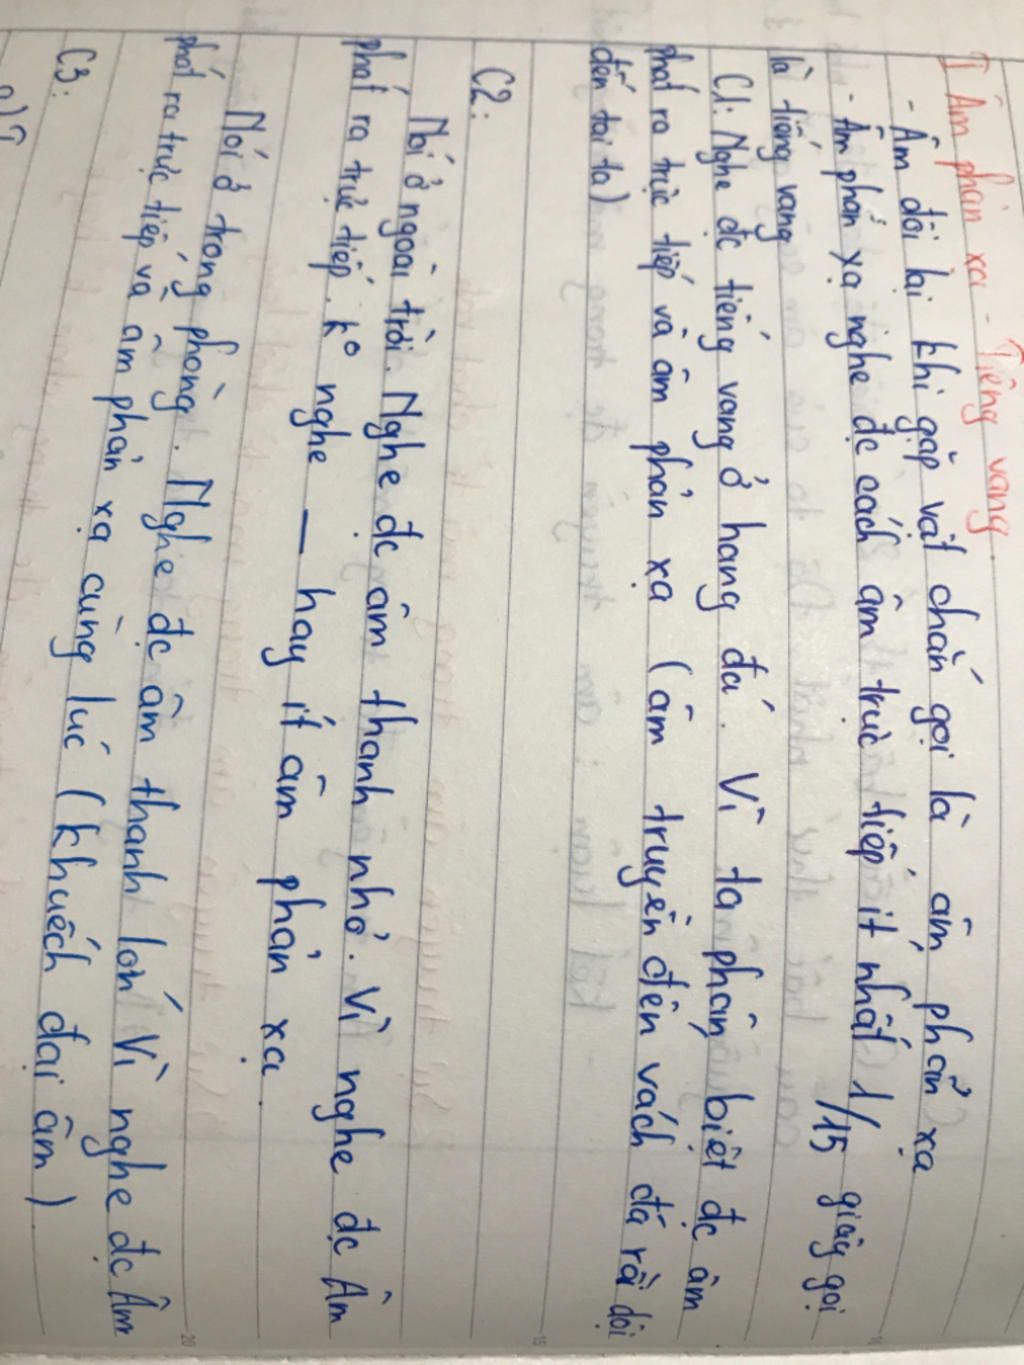 I Âm phản xạ - Tiếng vang
- Âm dội lại khi gặp vật chắn gọi là âm phản xạ
- Âm phản xạ nghe đc cách âm trực tiếp ít nhất 1/15 giây gọi
là tiếng vang
C1: Nghe đc tiếng vang ở hang đá. Vì ta phân biệt đc âm
phát ra trực tiếp và âm phản xạ (âm truyền đến vách đá rồi dội
đến tai ta)
C2:
Nói ở ngoài trời. Nghe đc âm thanh nhỏ. Vì nghe đc Âm
phát ra trực tiếp. k° nghe — hay ít âm phản xạ.
Nói ở trong phòng. Nghe đc âm thanh lớn Vì nghe đc Âm
phát ra trực tiếp và âm phản xạ cùng lúc (khuếch đại âm)
C3:
a)